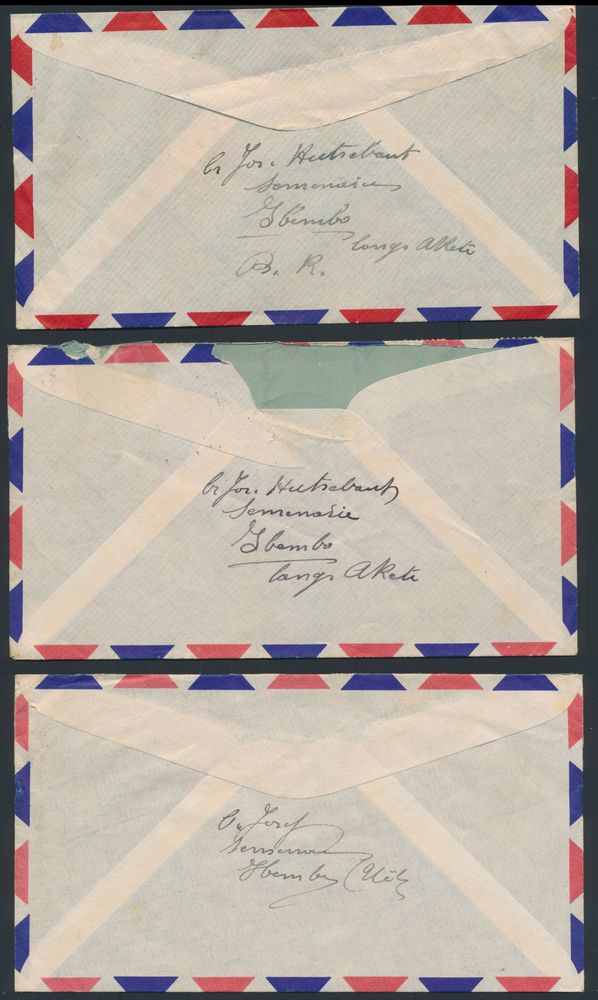 br Jos. Hutsebaut
Semenarie
Ibembo
langs Aketi
B. K.
br Jos. Hutsebaut
Semenarie
Ibembo
langs Aketi
Br Josef
Ibembo (Uélé